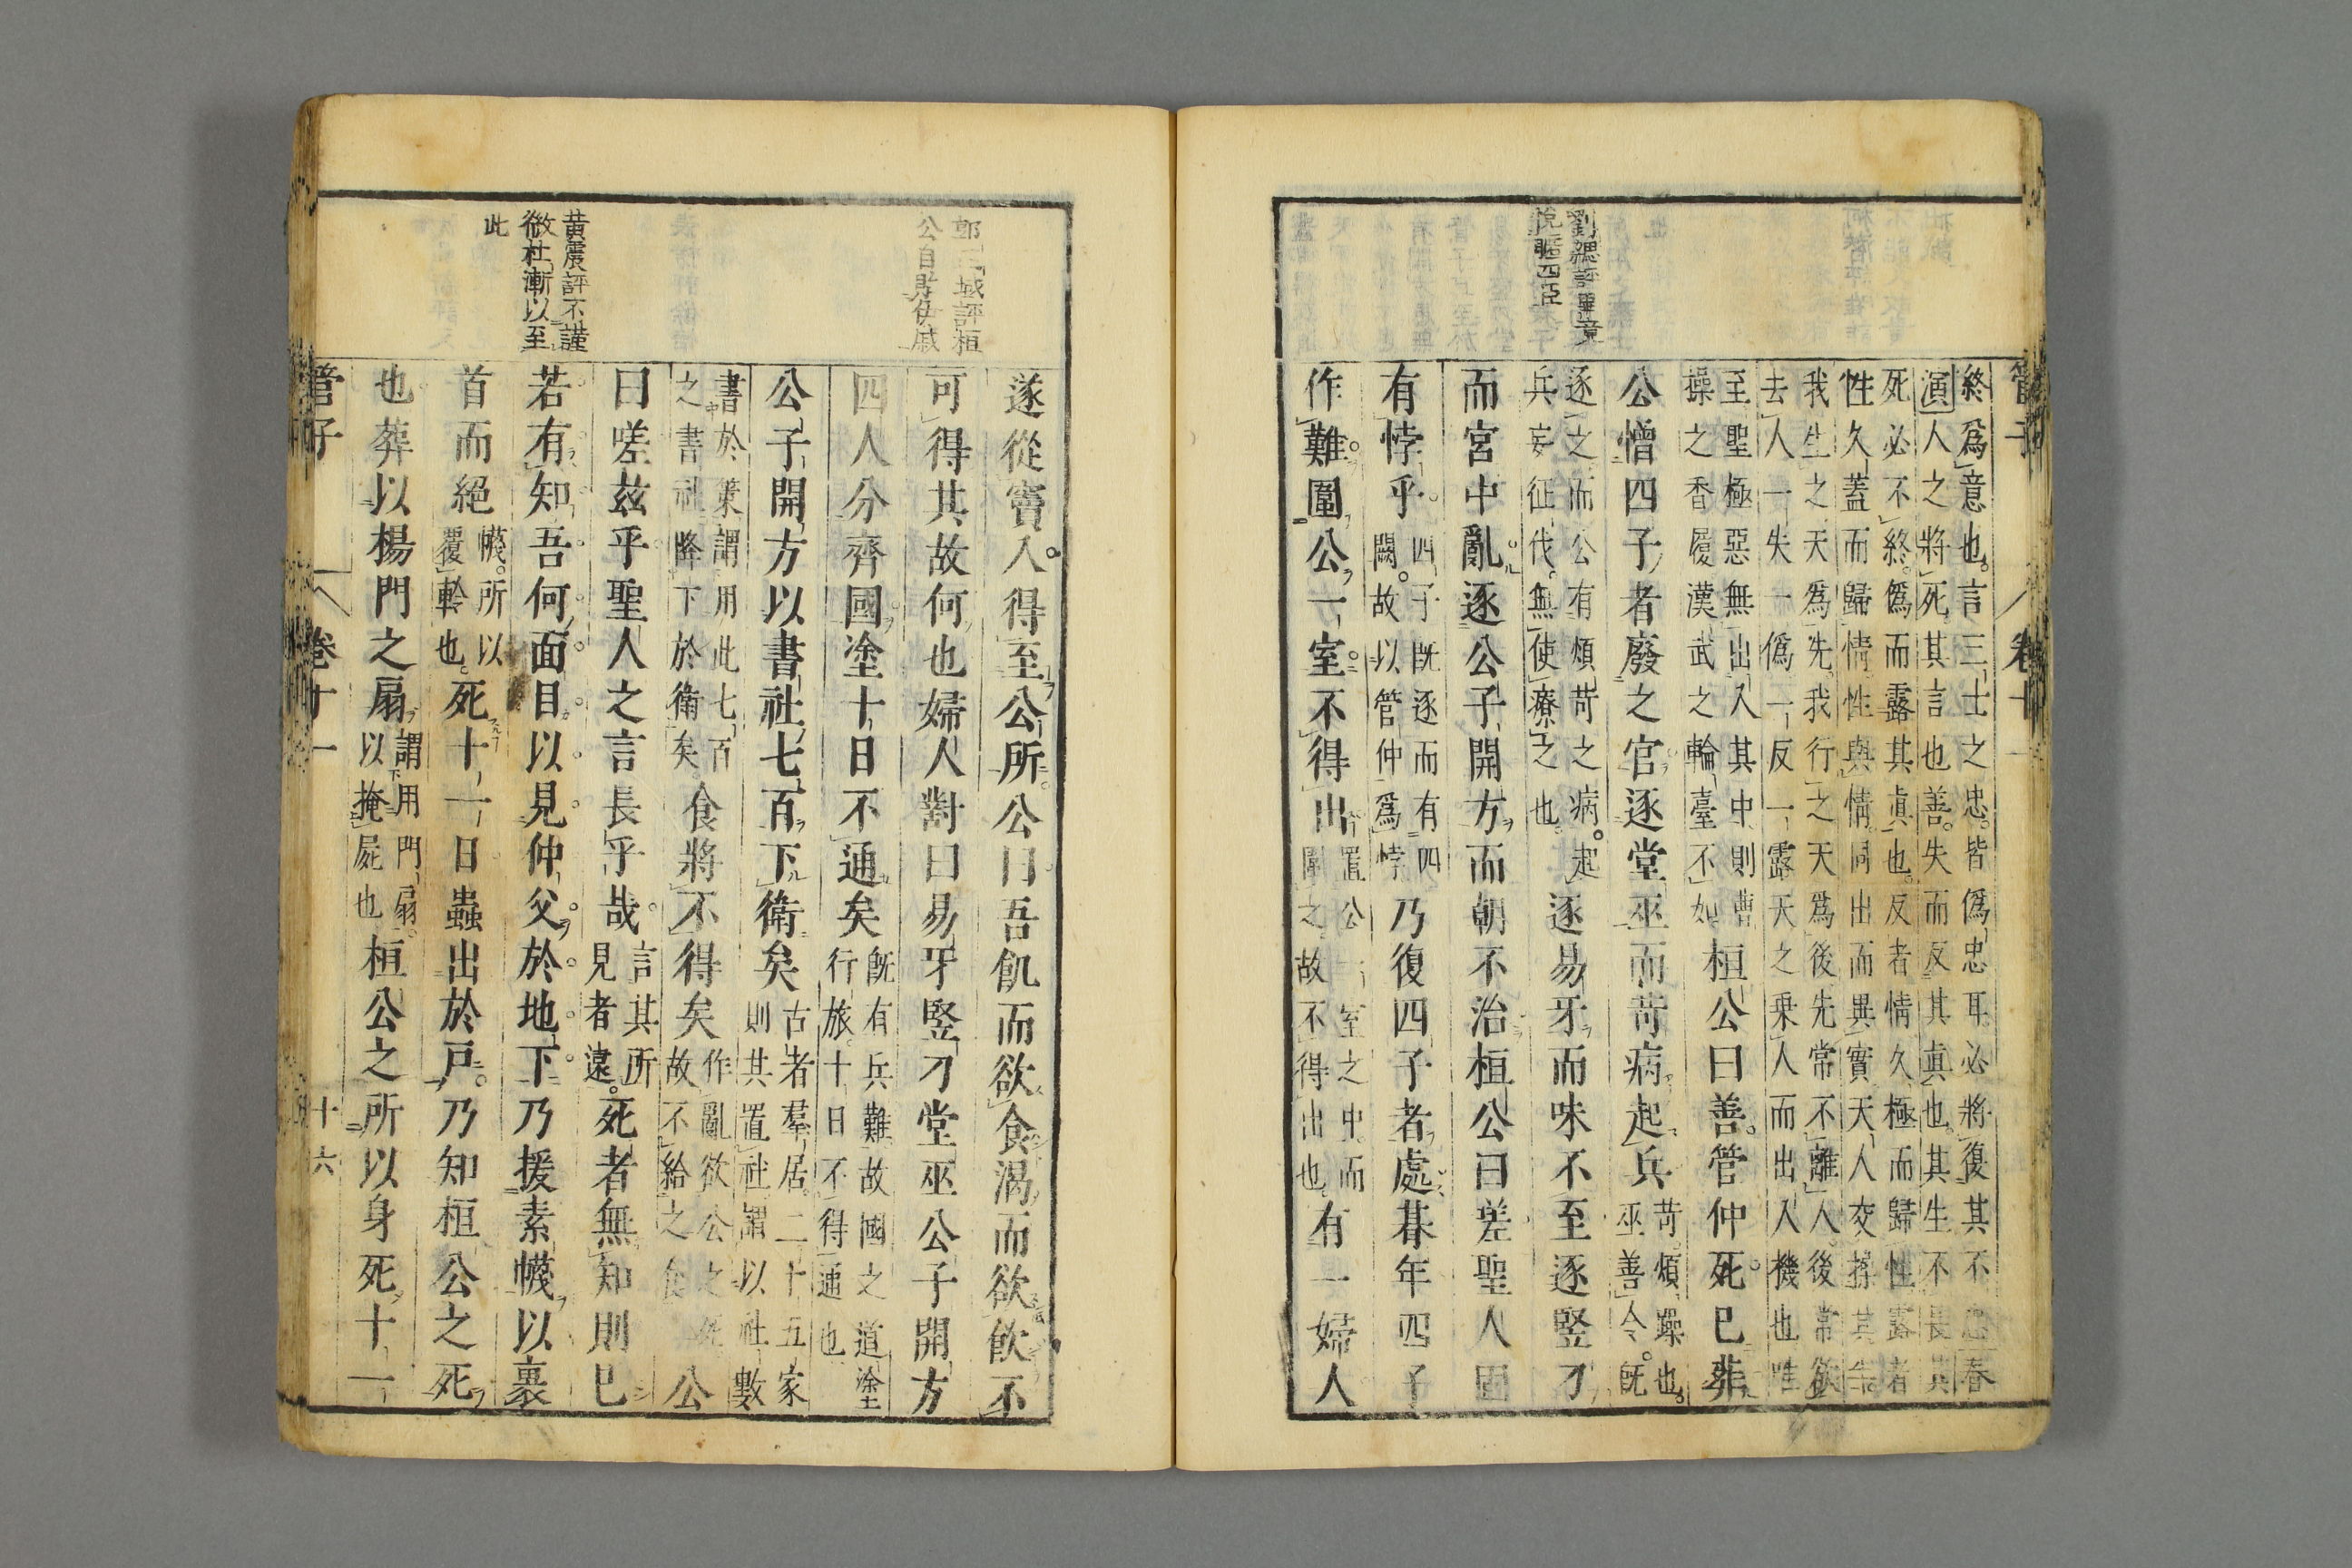 劉勰評墨竟
悅暱四臣
終爲意也言三士之忠皆僞忠耳必將復其不忠春
演人之將死其言也善失而反其眞也其生不長其
死必不終僞而露其眞也反者情久極而歸性露者
性久蓋而歸情性與情同出而異實天人交擇其
我生之天爲先我行之天爲後先常不離人後常欲
去人一失一僞一反一露天之乘人而出入機也
至聖極惡無出入其中則曹
操之香履漢武之輪臺不如
桓公曰善管仲死巳葬
公憎四子者廢之官逐堂巫而苛病起兵
苛煩躁也
巫善令旣
逐之而公有煩苛之病起
兵妄征伐無使療之也
逐易牙而味不至逐竪刁
而宮中亂逐公子開方而朝不治桓公曰嗟聖人固
有悖乎
四子旣逐而有四
闕故以管仲爲悖
乃復四子者處朞年四子
作難圍公一室不得出
置公一室之中而
圍之故不得出也
有一婦人
管子
卷十一
郭正域評桓
公自貽伊戚
黃震評不謹
微杜漸以至
此
遂從竇入得至公所公曰吾飢而欲食渴而欲飮不
可得其故何也婦人對曰易牙竪刁堂巫公子開方
四人分齊國塗十日不通矣
旣有兵難故國之道塗
行旅十日不得通也
公子開方以書社七百下衛矣
古者羣居二十五家
則其置社謂以社數
書於策謂用此七百
之書社降下於衛矣
食將不得矣
作亂欲公之死
故不給之食
公
曰嗟兹乎聖人之言長乎哉
言其所
見者遠
死者無知則巳
若有知吾何面目以見仲父於地下乃援素幭以裹
首而絕
幭所以
覆軨也
死十一日蟲出於戸乃知桓公之死
也葬以楊門之扇
謂用門扇
以掩屍也
桓公之所以身死十一
管子
卷十一
十六